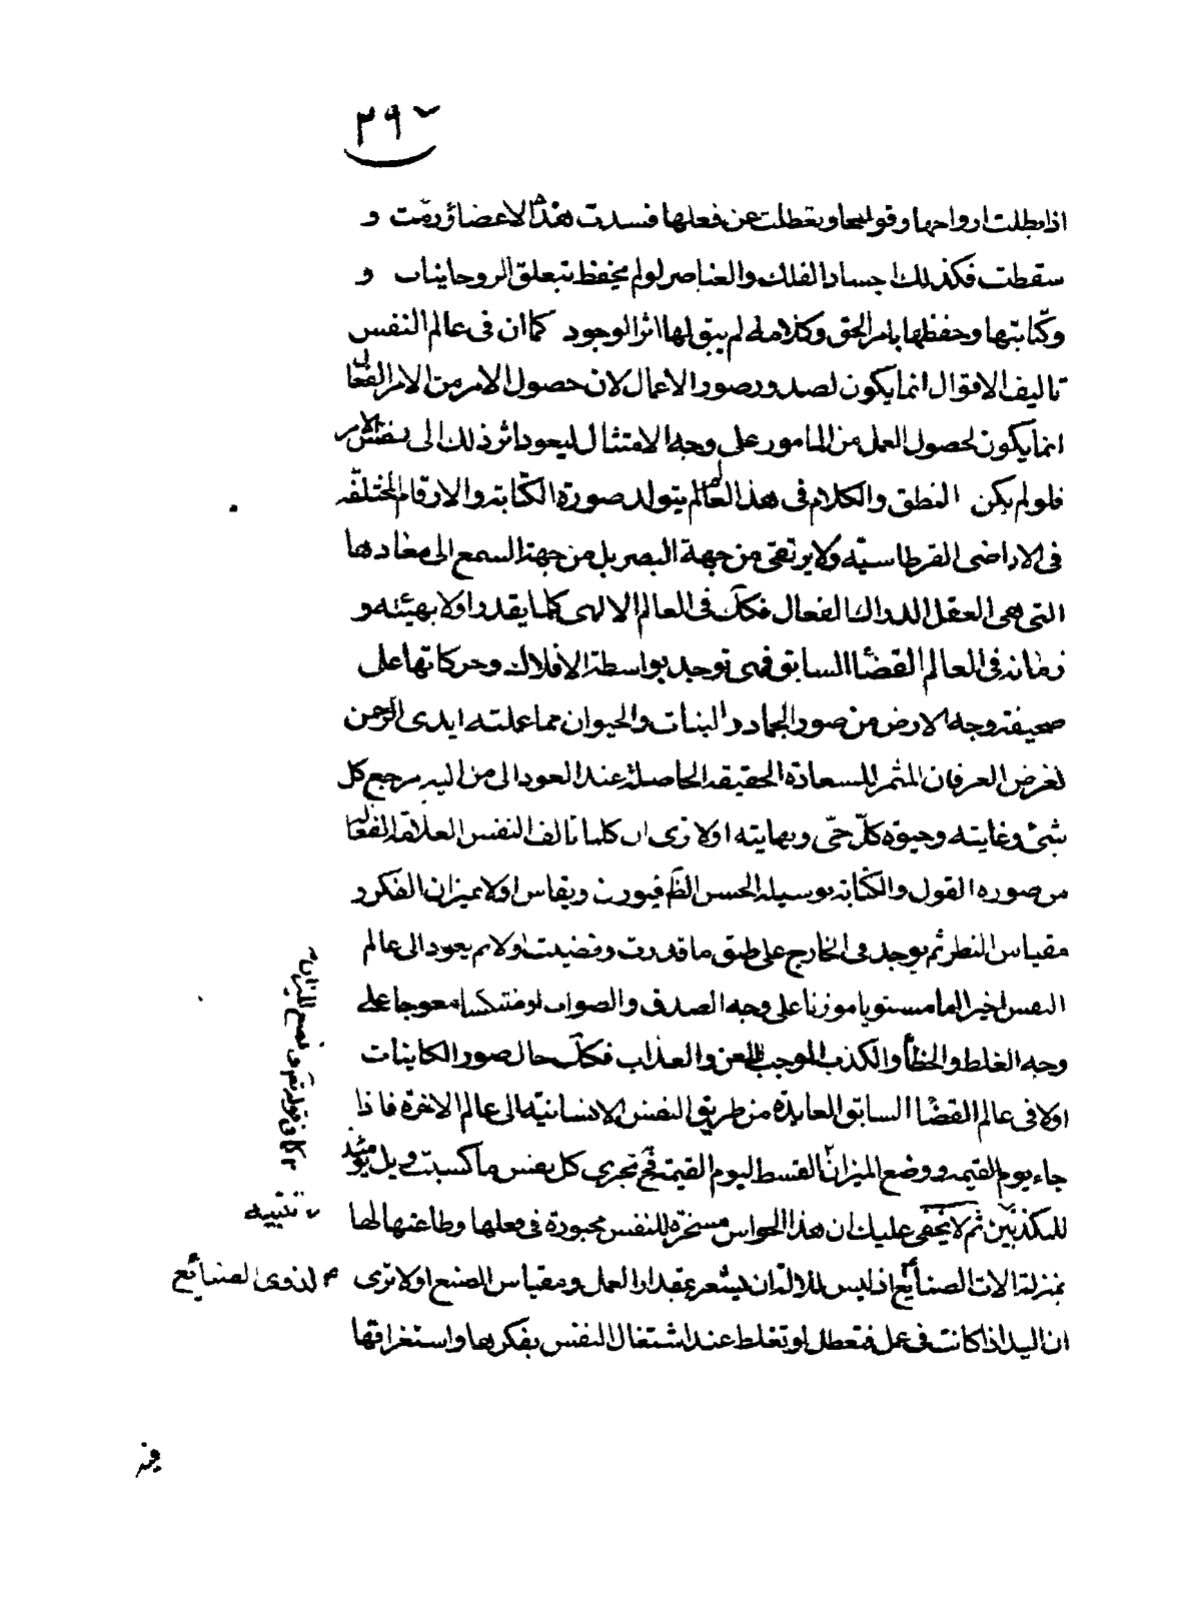 ٢٩٧
اذا بطلت ارواحها وقواها وتعطلت عن فعلها فسدت هذه الاعضاؤ رمّت و
سقطت فكذلك اجساد الفلك والعناصر لولم يحفظ بتعلق الروحانيات و
وكتابتها وحفظها بامر الحق وكلامه لم يبق لها اثر الوجود كما ان فى عالم النفس
تاليف الاقوال انما يكون لصدور صور الاعمال لان حصول الامر من الامر الفعّالى
انما يكون لحصول العمل من المامور على وجه الامتثال ليعود اثر ذلك الى نفس الامر
فلولم يكن النطق والكلام فى هذا العالم لم يتولد صورة الكتابة والارقام المختلفه
فى الاراضى القرطاسيّه ولا يرتقى من جهة البصر بل من جهة السمع الى معادها
التى هى العقل الدراك الفعال فكك فى العالم الالهى كلما يقدر اولا بهيئته و
زمانه فى العالم القضاا السابق فهى توجد بواسطة الافلاك وحركاتها على
صحيفة وجه الارض من صور الجماد والنبات والحيوان مما عملته ايدى الرحمن
لغرض العرفان المثمر للسعادة الحقيقه الحاصلة عند العود الى من اليه مرجع كل
شئ وغايته وحيوة كلّ حىّ ونهايته اولا ترى ان كلما تالف النفس العلاقه الفعاله
من صوره القول والكتابة بوسيله الحس الظ فيوزن ويقاس اولا بميزان الفكر و
مقياس النظر ثم يوجد فى الخارج على طبق ما قدرت وقضيت اولا ثم يعود الى عالم
النفس اخيرا اما مستويا موزنا على وجه الصدق والصواب او منتكسا معوجا على
وجه الغلط والخطأ والكذب الموجب للعن والعذاب فكك حال صور الكاينات
اولا فى عالم القضاا السابق العايدة من طريق النفس الانسانيّه الى عالم الاخرة فاذا
جاء يوم القيمه ووضع الميزان القسط اليوم القيمة فح تجزى كل نفس ما كسبت ويل يومئذ
للمكذبين ثم لا يخفى عليك ان هذا الحواس مسخرة للنفس مجبورة فى فعلها وطاعتها لها
بمنزلة الات الصنائع اذ ليس للالة ان يشعر بمقدار العمل ومقياس الصنع اولا ترى
ان اليد اذا كانت فى عمل فتعطل او تغلط عند اشتغال النفس بفكرها واستغراقها
كما فى قوله تعم ونضع الميزان
تنبيه
لذوى الصنايع